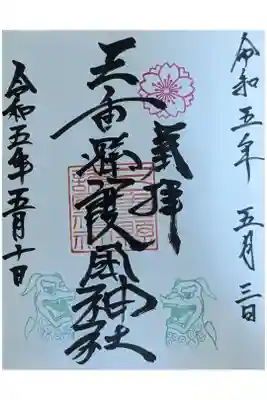 令和五年 五月三日
奉拝
三重縣護國神社
令和五年五月十日